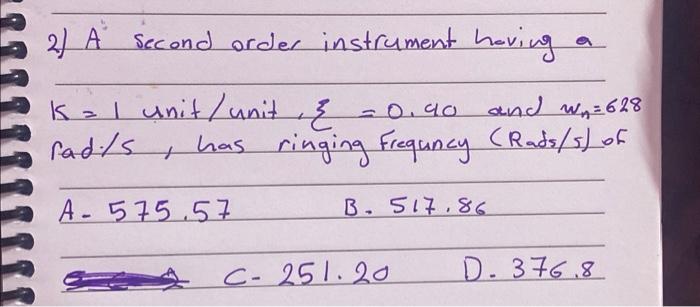 2) A second order instrument having a
K = 1 unit/unit, ξ = 0.40 and wn = 628
rad/s, has ringing frequncy (Rads/s) of
A- 575.57 B. 517.86
C- 251.20 D. 376.8